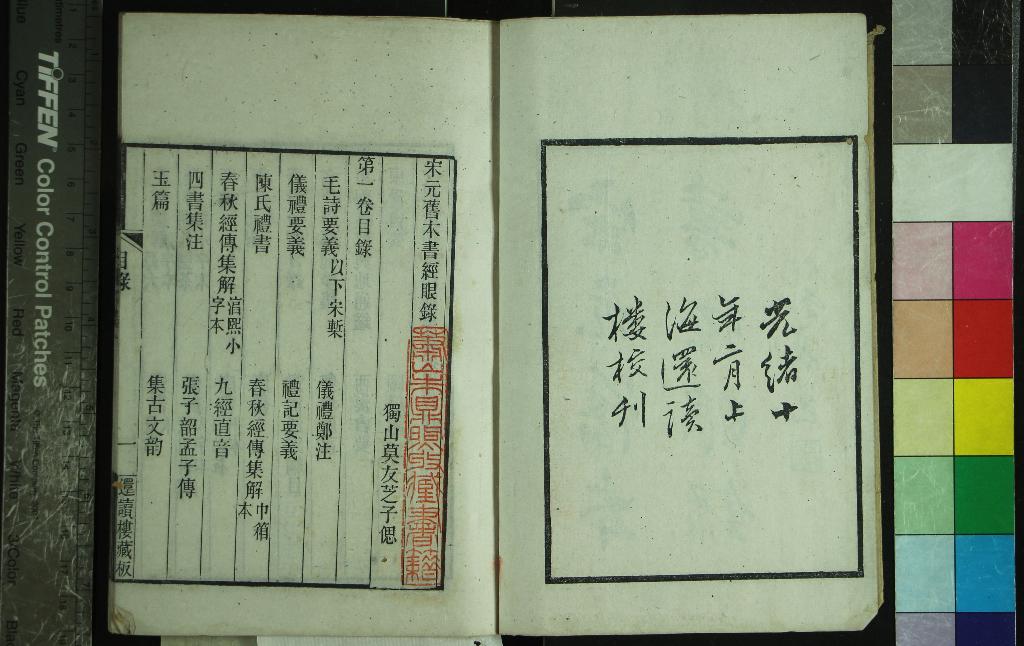 光緒十
年二月上
海還讀
樓校刋
宋元舊本書經眼錄
獨山莫友芝子偲
第一卷目錄
毛詩要義以下宋槧
儀禮鄭注
儀禮要義
禮記要義
陳氏禮書
春秋經傳集解巾箱本
春秋經傳集解淳熙小字本
九經直音
四書集注
張子韶孟子傳
玉篇
集古文韵
目錄
一
還讀樓藏板
TIFFEN Color Control Patches
Blue
Cyan
Green
Yellow
Red
Magenta
White
3/Color
Black